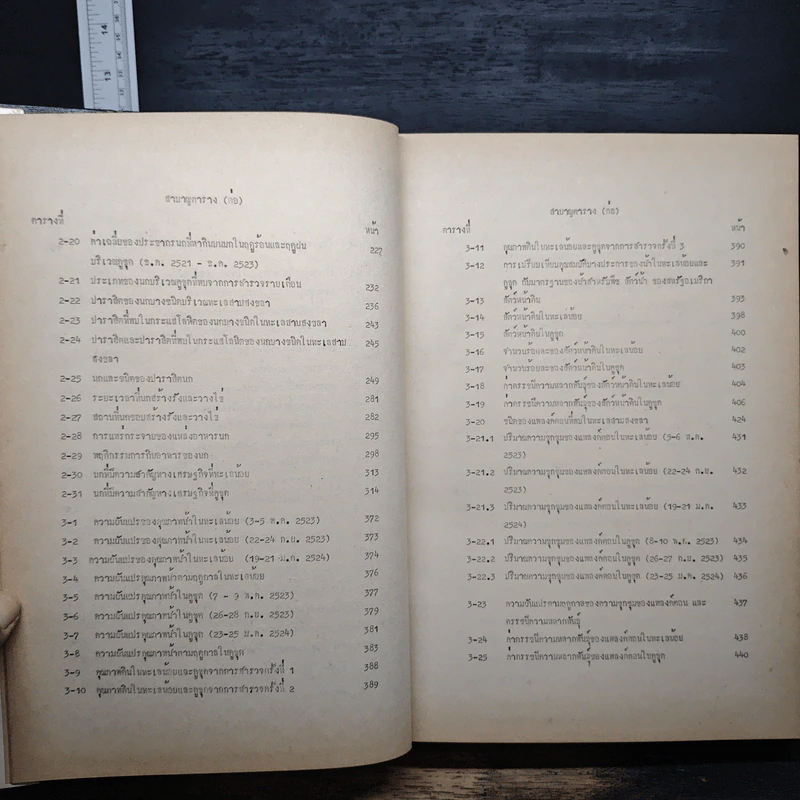 14
13
สารบาญตาราง (ต่อ)
ตารางที่
หน้า
2-20 ค่าเฉลี่ยของประชากรนกที่หากินบนบกในฤดูร้อนและฤดูฝน
บริเวณคูขุด (พ.ศ. 2521 - พ.ศ. 2523) 227
2-21 ประเภทของนกบริเวณคูขุดที่พบจากการสำรวจรายเดือน 232
2-22 ปาราสิตของนกบางชนิดบริเวณทะเลสาบสงขลา 236
2-23 ปาราสิตที่พบในกระแสโลหิตของนกบางชนิดในทะเลสาบสงขลา 243
2-24 ปาราสิตและปาราสิตที่พบในกระแสโลหิตของนกบางชนิดในทะเลสาบ 245
สงขลา
2-25 นกและชนิดของปาราสิตนก 249
2-26 ระยะเวลาที่นกสร้างรังและวางไข่ 281
2-27 สถานที่นกชอบสร้างรังและวางไข่ 282
2-28 การแพร่กระจายของแหล่งอาหารนก 295
2-29 พฤติกรรมการกินอาหารของนก 298
2-30 นกที่มีความสำคัญทางเศรษฐกิจที่ทะเลน้อย 313
2-31 นกที่มีความสำคัญทางเศรษฐกิจที่คูขุด 314
3-1 ความผันแปรของคุณภาพน้ำในทะเลน้อย (3-5 พ.ค. 2523) 372
3-2 ความผันแปรของคุณภาพน้ำในทะเลน้อย (22-24 ก.ย. 2523) 373
3-3 ความผันแปรของคุณภาพน้ำในทะเลน้อย (19-21 ม.ค. 2524) 374
3-4 ความผันแปรคุณภาพน้ำตามฤดูกาลในทะเลน้อย 376
3-5 ความผันแปรคุณภาพน้ำในคูขุด (7 - 9 พ.ค. 2523) 377
3-6 ความผันแปรคุณภาพน้ำในคูขุด (26-28 ก.ย. 2523) 379
3-7 ความผันแปรคุณภาพน้ำในคูขุด (23-25 ม.ค. 2524) 381
3-8 ความผันแปรคุณภาพน้ำตามฤดูกาลในคูขุด 383
3-9 คุณภาพดินในทะเลน้อยและคูขุดจากการสำรวจครั้งที่ 1 388
3-10 คุณภาพดินในทะเลน้อยและคูขุดจากการสำรวจครั้งที่ 2 389
สารบาญตาราง (ต่อ)
ตารางที่
หน้า
3-11 คุณภาพดินในทะเลน้อยและคูขุดจากการสำรวจครั้งที่ 3 390
3-12 การเปรียบเทียบคุณสมบัติบางประการของน้ำในทะเลน้อยและ 391
คูขุด กับมาตรฐานของน้ำสำหรับพืช สัตว์น้ำ ของสหรัฐอเมริกา
3-13 สัตว์หน้าดิน 393
3-14 สัตว์หน้าดินในทะเลน้อย 398
3-15 สัตว์หน้าดินในคูขุด 400
3-16 จำนวนร้อยละของสัตว์หน้าดินในทะเลน้อย 402
3-17 จำนวนร้อยละของสัตว์หน้าดินในคูขุด 403
3-18 ค่าดรรชนีความหลากพันธุ์ของสัตว์หน้าดินในทะเลน้อย 404
3-19 ค่าดรรชนีความหลากพันธุ์ของสัตว์หน้าดินในคูขุด 406
3-20 ชนิดของแพลงค์ตอนที่พบในทะเลสาบสงขลา 424
3-21.1 ปริมาณความชุกชุมของแพลงค์ตอนในทะเลน้อย (5-6 พ.ค. 431
2523)
3-21.2 ปริมาณความชุกชุมของแพลงค์ตอนในทะเลน้อย (22-24 ก.ย. 432
2523)
3-21.3 ปริมาณความชุกชุมของแพลงค์ตอนในทะเลน้อย (19-21 ม.ค. 433
2524)
3-22.1 ปริมาณความชุกชุมของแพลงค์ตอนในคูขุด (8-10 พ.ค. 2523) 434
3-22.2 ปริมาณความชุกชุมของแพลงค์ตอนในคูขุด (26-27 ก.ย. 2523) 435
3-22.3 ปริมาณความชุกชุมของแพลงค์ตอนในคูขุด (23-25 ม.ค. 2524) 436
3-23 ความผันแปรตามฤดูกาลของความชุกชุมของแพลงค์ตอน และ 437
ดรรชนีความหลากพันธุ์
3-24 ค่าดรรชนีความหลากพันธุ์ของแพลงค์ตอนในทะเลน้อย 438
3-25 ค่าดรรชนีความหลากพันธุ์ของแพลงค์ตอนในคูขุด 440